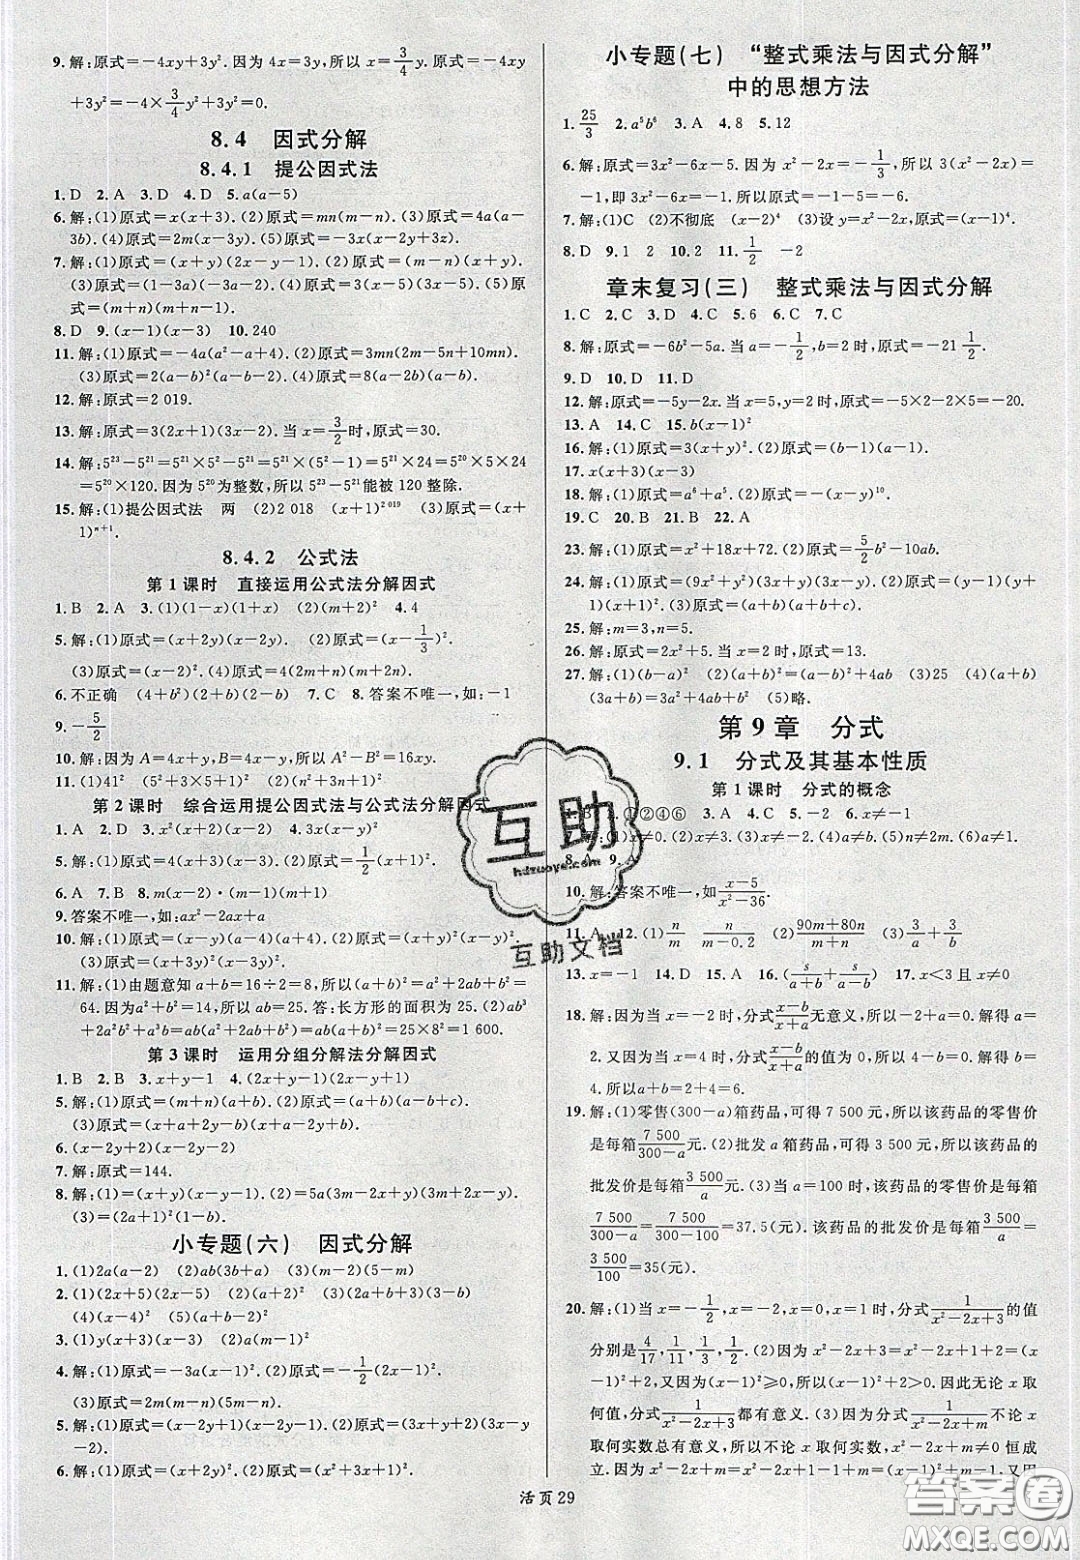 9.解:原式=-4xy+3y².因为4x=3y,所以x=3/4y.原式=-4xy
+3y²=-4×3/4y²+3y²=0.
8.4 因式分解
8.4.1 提公因式法
1.D 2.A 3.D 4.D 5.a(a-5)
6.解:(1)原式=x(x+3).(2)原式=mn(m-n).(3)原式=4a(a-
3b).(4)原式=2m(x-3y).(5)原式=-3x(x-2y+3z).
7.解:(1)原式=(x+y)(x-y-1).(2)原式=(x-y)(a-b+c).
(3)原式=(1-3a)(1-4a).(4)原式=6(x-3)(5-x).(5)原
式=(m+n)(m+n-1).
8.D 9.(x-1)(x-3) 10.240
11.解:(1)原式=-4a(a²-a+4).(2)原式=3mn(2m-n-10mn).
(3)原式=2(a-b)²(a-b-1).(4)原式=8(a-2b)(a-b).
12.解:原式=2 019.
13.解:原式=3(2x+1)(3x-2).当x=3/2时,原式=30.
14.解:5²³-5²¹=5²¹×5²-5²¹=5²¹×(5²-1)=5²¹×24=5²⁰×5×24
=5²⁰×120.因为5²⁰为整数,所以5²³-5²¹能被120整除.
15.解:(1)提公因式法 两 (2)2 018 (x+1)²⁰¹⁹ (3)原式=(x+
1)ⁿ⁺¹.
8.4.2 公式法
第1课时 直接运用公式法分解因式
1.B 2.A 3.(1)(1-x)(1+x) (2)(m+1)² 4.4
5.解:(1)原式=(x+2y)(x-2y).(2)原式=(x-1/3)².
(3)原式=(x-2)².(4)原式=4(2m+n)(m+2n).
6.不正确 (4+b²)(2+b)(2-b) 7.C 8.答案不唯一,如:-1
9.-5/2
10.解:因为A=4x+y,B=4x-y,所以A²-B²=16xy.
11.(1)41² (2)(n²+3n+1)² (3)略.
第2课时 综合运用提公因式法与公式法分解因式
1.A 2.D 3.2(a+1)² 4.3x(x-y)²
5.解:(1)原式=4(x+3)(x-3).(2)原式=1/2(x+1)².
6.A 7.B 8.m(x-2)·(m-1)(m+1)
9.答案不唯一,如:ax²-2ax+a
10.解:(1)原式=(x-y)(a+4)(a-4).(2)原式=-y(3x-y)².
(3)原式=(x+3y)²(x-3y)².
11.解:(1)由题意知a+b=16÷2=8,所以(a+b)²=a²+2ab+b²=
64.因为a²+b²=14,所以ab=25.答:长方形的面积为25.(2)ab³
+2a²b²+a³b=ab(a²+2ab+b²)=ab(a+b)²=25×8²=1 600.
第3课时 运用分组分解法分解因式
1.B 2.B 3.x+y-1 4.(2x+y)(2x-y-1)
5.解:(1)原式=(m+n)(a+b).(2)原式=(a-b)(a-b+c).
(3)原式=(x+4y+1)(x+4y-1).
6.(x-2y+2)(x-2y-2)
7.解:原式=144.
8.解:(1)=(x+y)(x-y-1).(2)=5a(3m-2x+y)(3m-2x-y).
(3)=(2a+1)²(1-b).
小专题(六) 因式分解
1.(1)2a(a-2) (2)ab(3b+a) (3)(m-2)(5-m)
2.(1)(2x+5)(2x-5) (2)(a+2)² (3)(a+b)(a-b)
(4)(x-2)² (5)(a+b-2)²
3.(1)y(x+3)(x-3) (2)a(m-1)²
4.解:(1)原式=-3a(x-1)².(2)原式=-1/2(2x-1)².
(3)原式=2m(m-n)(5m-n).
5.解:(1)原式=(x-2y+1)(x-2y-1).(2)原式=(3x+y+2)(3x-y
-2).
6.解:(1)原式=(x-2)⁴.(2)原式=(x²+3x+1)².
小专题(七) “整式乘法与因式分解”
中的思想方法
1.25/3 2.a⁵b⁶ 3.A 4.8 5.12
6.解:原式=3x²-6x-5.因为x²-2x=-1/3,所以3(x²-2x)=
-1,即3x²-6x=-1.所以原式=-6.
7.解:(1)C (2)不彻底 (x-2)⁴ (3)设y=x²-2x,原式=(x-1)⁴.
8.D 9.1 2 10.2 11.1/2 -2
章末复习(三) 整式乘法与因式分解
1.C 2.C 3.D 4.C 5.6 6.C 7.C
8.解:原式=-6b²-5a.当a=-1/2,b=2时,原式=-21 1/2.
9.D 10.D 11.D
12.解:原式=-5y-2x.当x=5,y=2时,原式=-5×2-2×5=-20.
13.A 14.C 15.b(x-1)²
16.解:(1)原式=3(x+y)².(2)原式=(b-1)(a-1).
17.x(x+3)(x-3)
18.解:(1)原式=a⁶+a⁵.(2)原式=-(x-y)¹⁰.
19.C 20.B 21.C 22.A
23.解:(1)原式=x²+18x+72.(2)原式=5/2b²-10ab.
24.解:(1)原式=(y-6x)(y+6x).(2)原式=(b²+1)(b+
1)(b-1).(3)原式=(x-1)²(x+1)².
25.解:m=3,n=5.
26.解:原式=2x²+5.当x=-2时,原式=13.
27.解:(1)(b-a)² (2)(a+b)²=(a-b)²+4ab (3)25 (4)(a+b)·
(3a+b)=3a²+4ab+b² (5)略.
第9章 分式
9.1 分式及其基本性质
第1课时 分式的概念
1.B ①②④⑥ 3.A 4.C 5.-2 6.x≠-1
7.解:(1)x≠0.(2)x≠3.(3)x≠-3/2.(4)a≠b.(5)n≠2m.(6)a≠1.
8.A 9.A
10.解:答案不唯一,如(x-5)/(x²-36).
11.A 12.(1)n/m n/(m-0.2) (2)(90m+80n)/(m+n) (3)s/a+s/b
13.x=-1 14.D 15.A 16.(s/(a+b)+s/(a-b)) 17.x<3且x≠0
18.解:因为x=-2时,分式(x-b)/(x+a)无意义,所以-2+a=0.所以a=
2.又因为x=4时,分式(x-b)/(x+a)的值为0,所以4-b=0.所以b=
4.所以a+b=2+4=6.
19.解:(1)零售(300-a)箱药品,可得7 500元,所以该药品的零售价
是每箱7 500/(300-a)元.(2)批发a箱药品,可得3 500元,所以该药品的
批发价是每箱3 500/a元.(3)当a=100时,该药品的零售价是每箱
7 500/(300-a)=7 500/(300-100)=37.5(元).该药品的批发价是每箱3 500/a=
3 500/100=35(元).
20.解:(1)当x=-1/2,0,1/2,1时,分式1/(x²-2x+3)的值
分别是4/17,1/11,1/3,1/2.(2)因为x²-2x+3=x²-2x+1+2=(x
-1)²+2,(x-1)²≥0,所以(x-1)²+2≥2.因此无论x取
何值,分式1/(x²-2x+3)都有意义.(3)因为分式1/(x²-2x+m)不论x
取何实数总有意义,所以不论x取何实数,x²-2x+m≠0恒成
立.因为x²-2x+m=x²-2x+1+m-1=(x-1)²+m-1.又因
活页29
互助
hdzuoye.com
互助文档
答案圈
MXQE.COM